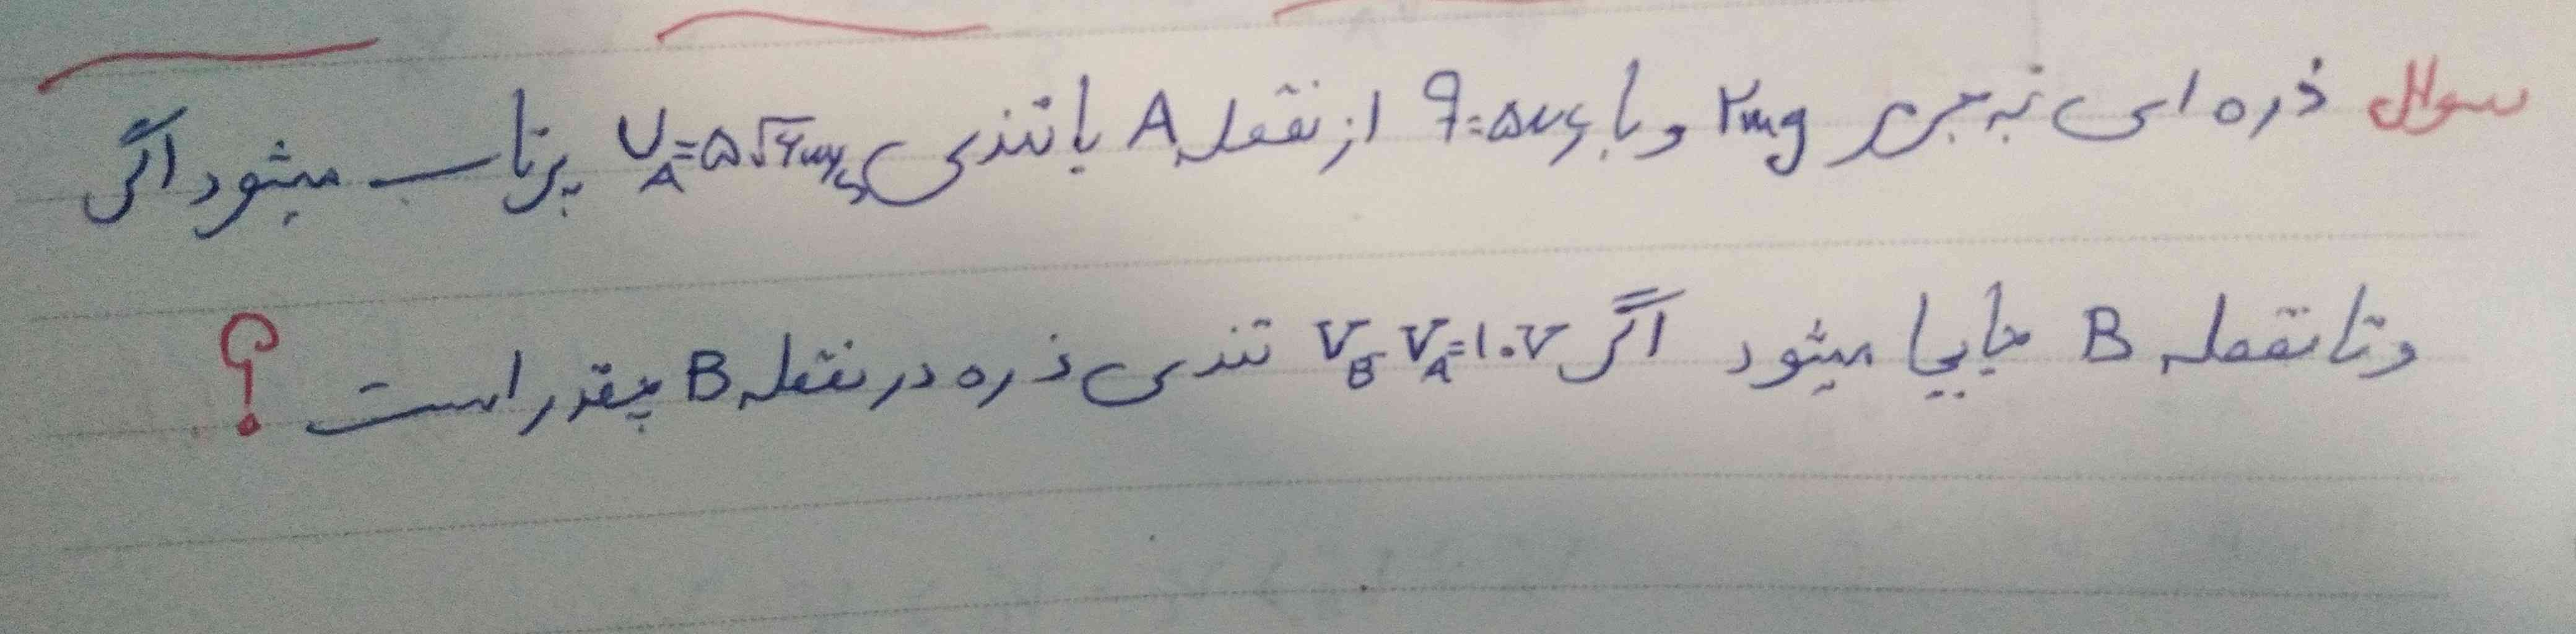 سوال ذره ای به جرم ۲mg و بار q=۵μc از نقطه A با تندی U_A=۵√۲m/s پرتاب میشود اگر
و تا نقطه B جابجا میشود اگر V_B-V_A=۱۰V تندی ذره در نقطه B چقدر است ؟